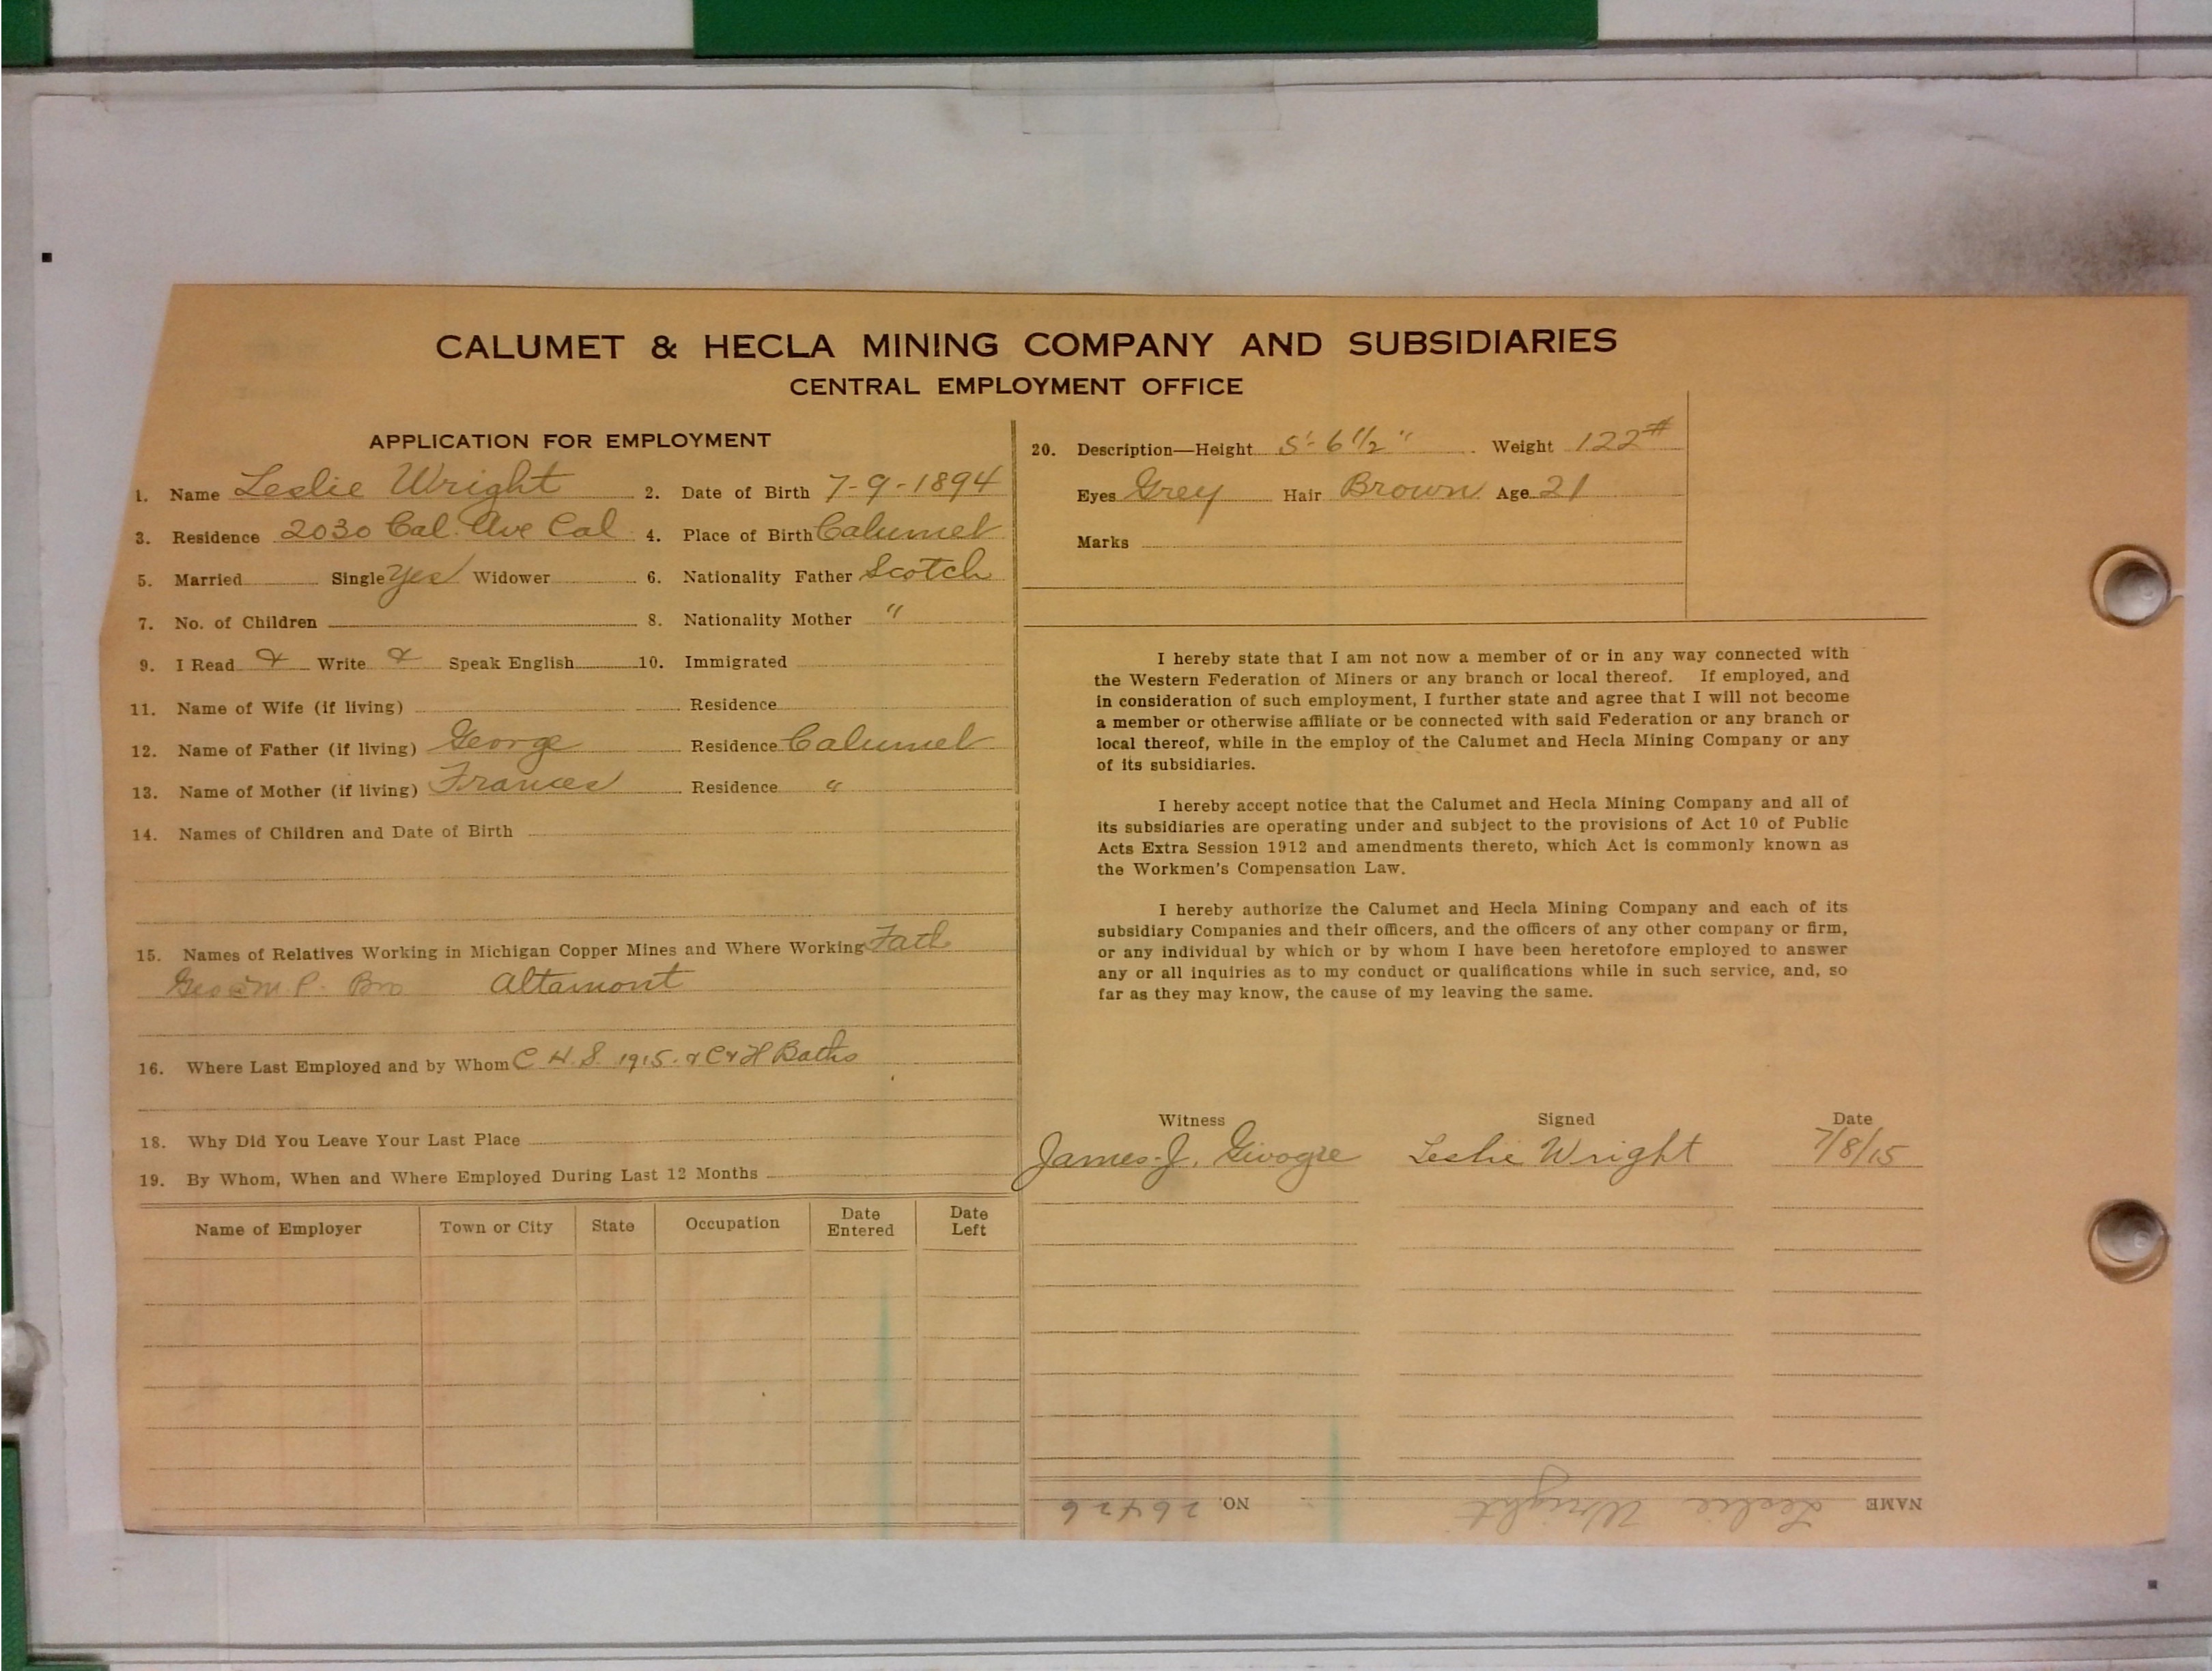 CALUMET & HECLA MINING COMPANY AND SUBSIDIARIES
CENTRAL EMPLOYMENT OFFICE
APPLICATION FOR EMPLOYMENT
1. Name Leslie Wright 2. Date of Birth 7-9-1894
3. Residence 2030 Cal. Ave Cal 4. Place of Birth Calumet
5. Married Single Yes Widower 6. Nationality Father Scotch
7. No. of Children 8. Nationality Mother "
9. I Read & Write & Speak English 10. Immigrated
11. Name of Wife (if living) Residence
12. Name of Father (if living) George Residence Calumet
13. Name of Mother (if living) Frances Residence "
14. Names of Children and Date of Birth
15. Names of Relatives Working in Michigan Copper Mines and Where Working Fath
Geo Bro Altamont
16. Where Last Employed and by Whom C. H. S. 1915. & C & H Baths
18. Why Did You Leave Your Last Place
19. By Whom, When and Where Employed During Last 12 Months
Name of Employer Town or City State Occupation Date Entered Date Left
20. Description—Height 5'-6 1/2" Weight 122#
Eyes Grey Hair Brown Age 21
Marks
I hereby state that I am not now a member of or in any way connected with
the Western Federation of Miners or any branch or local thereof. If employed, and
in consideration of such employment, I further state and agree that I will not become
a member or otherwise affiliate or be connected with said Federation or any branch or
local thereof, while in the employ of the Calumet and Hecla Mining Company or any
of its subsidiaries.
I hereby accept notice that the Calumet and Hecla Mining Company and all of
its subsidiaries are operating under and subject to the provisions of Act 10 of Public
Acts Extra Session 1912 and amendments thereto, which Act is commonly known as
the Workmen's Compensation Law.
I hereby authorize the Calumet and Hecla Mining Company and each of its
subsidiary Companies and their officers, and the officers of any other company or firm,
or any individual by which or by whom I have been heretofore employed to answer
any or all inquiries as to my conduct or qualifications while in such service, and, so
far as they may know, the cause of my leaving the same.
Witness Signed Date
James J. Leslie Wright 7/8/15
NAME Leslie Wright NO. 26426